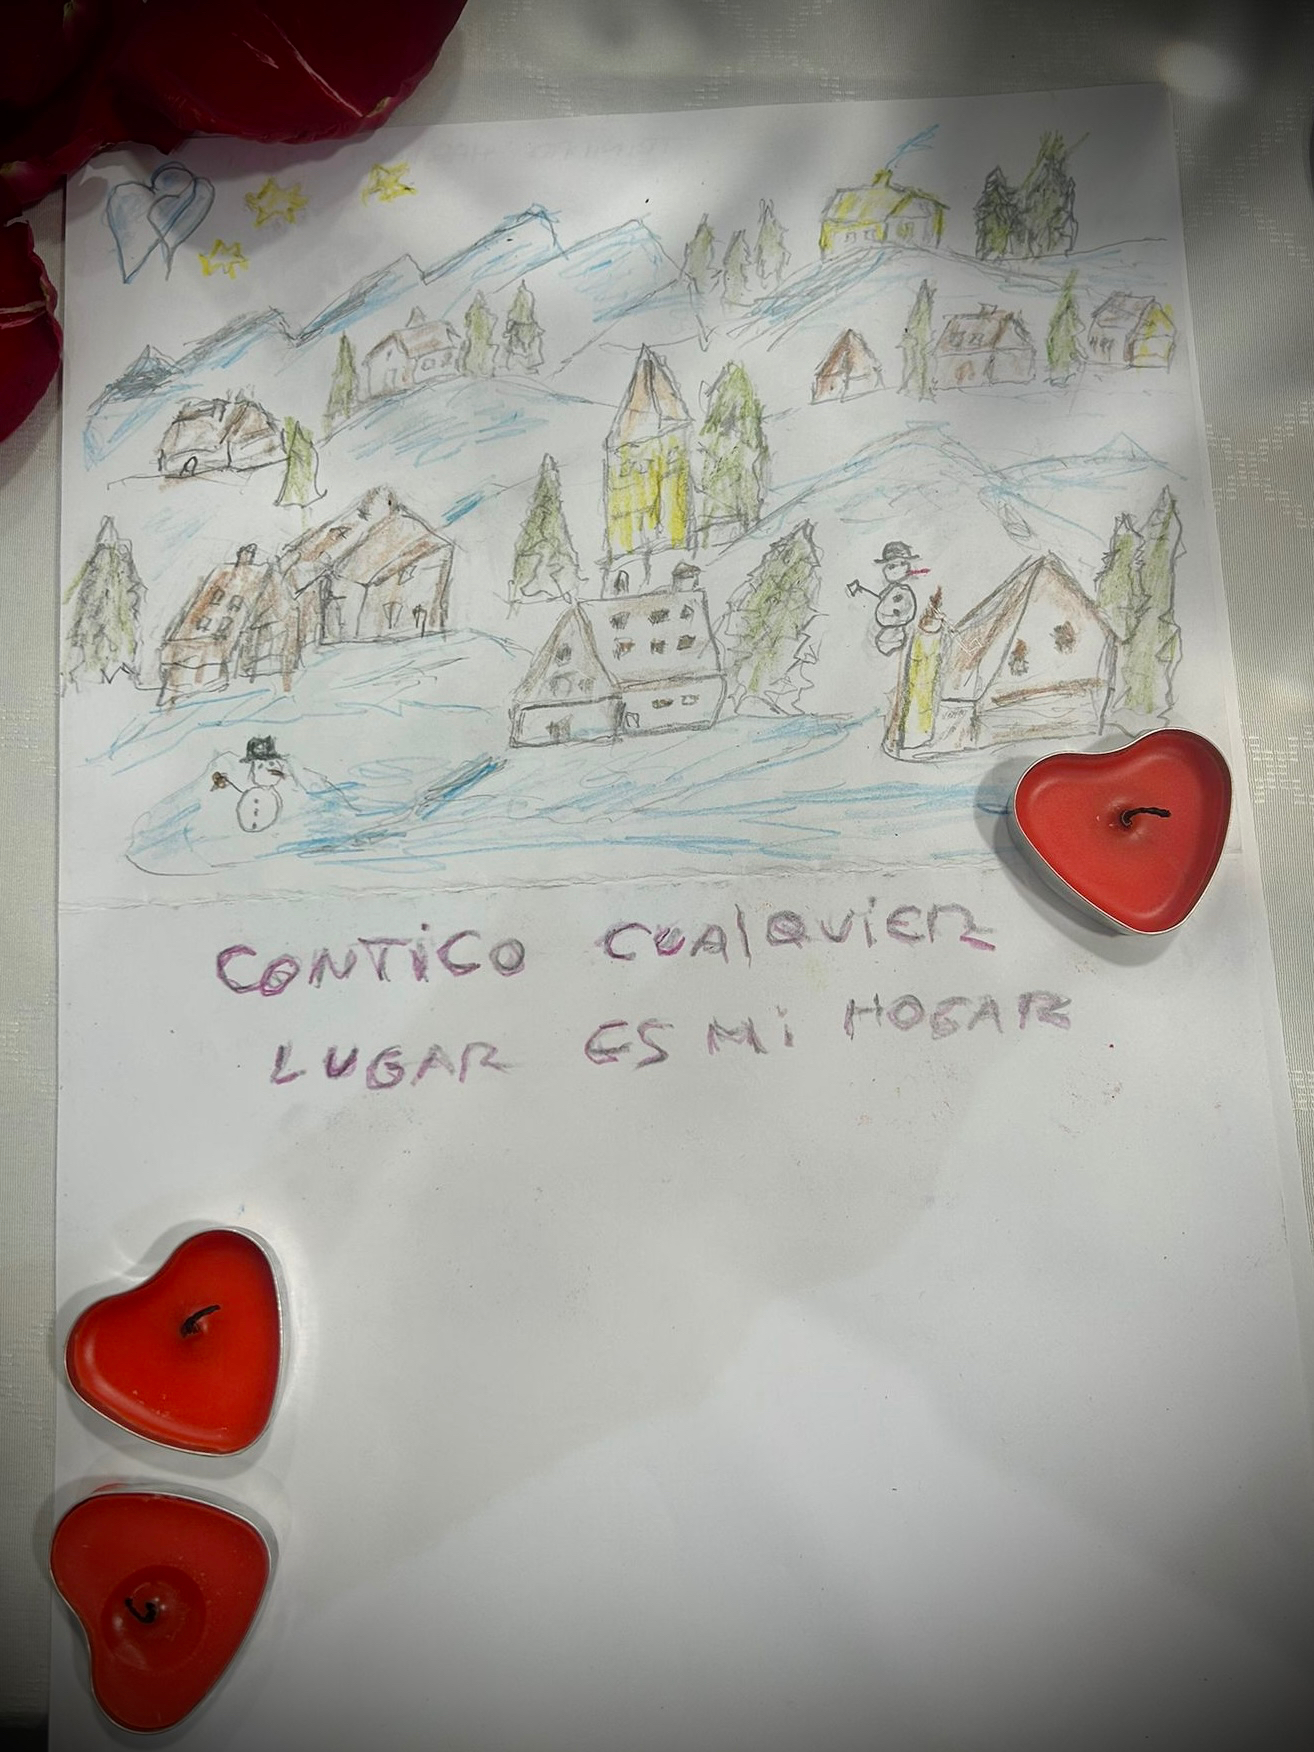 CONTIGO CUAlQUiER
LUGAR ES Mi HOGAR